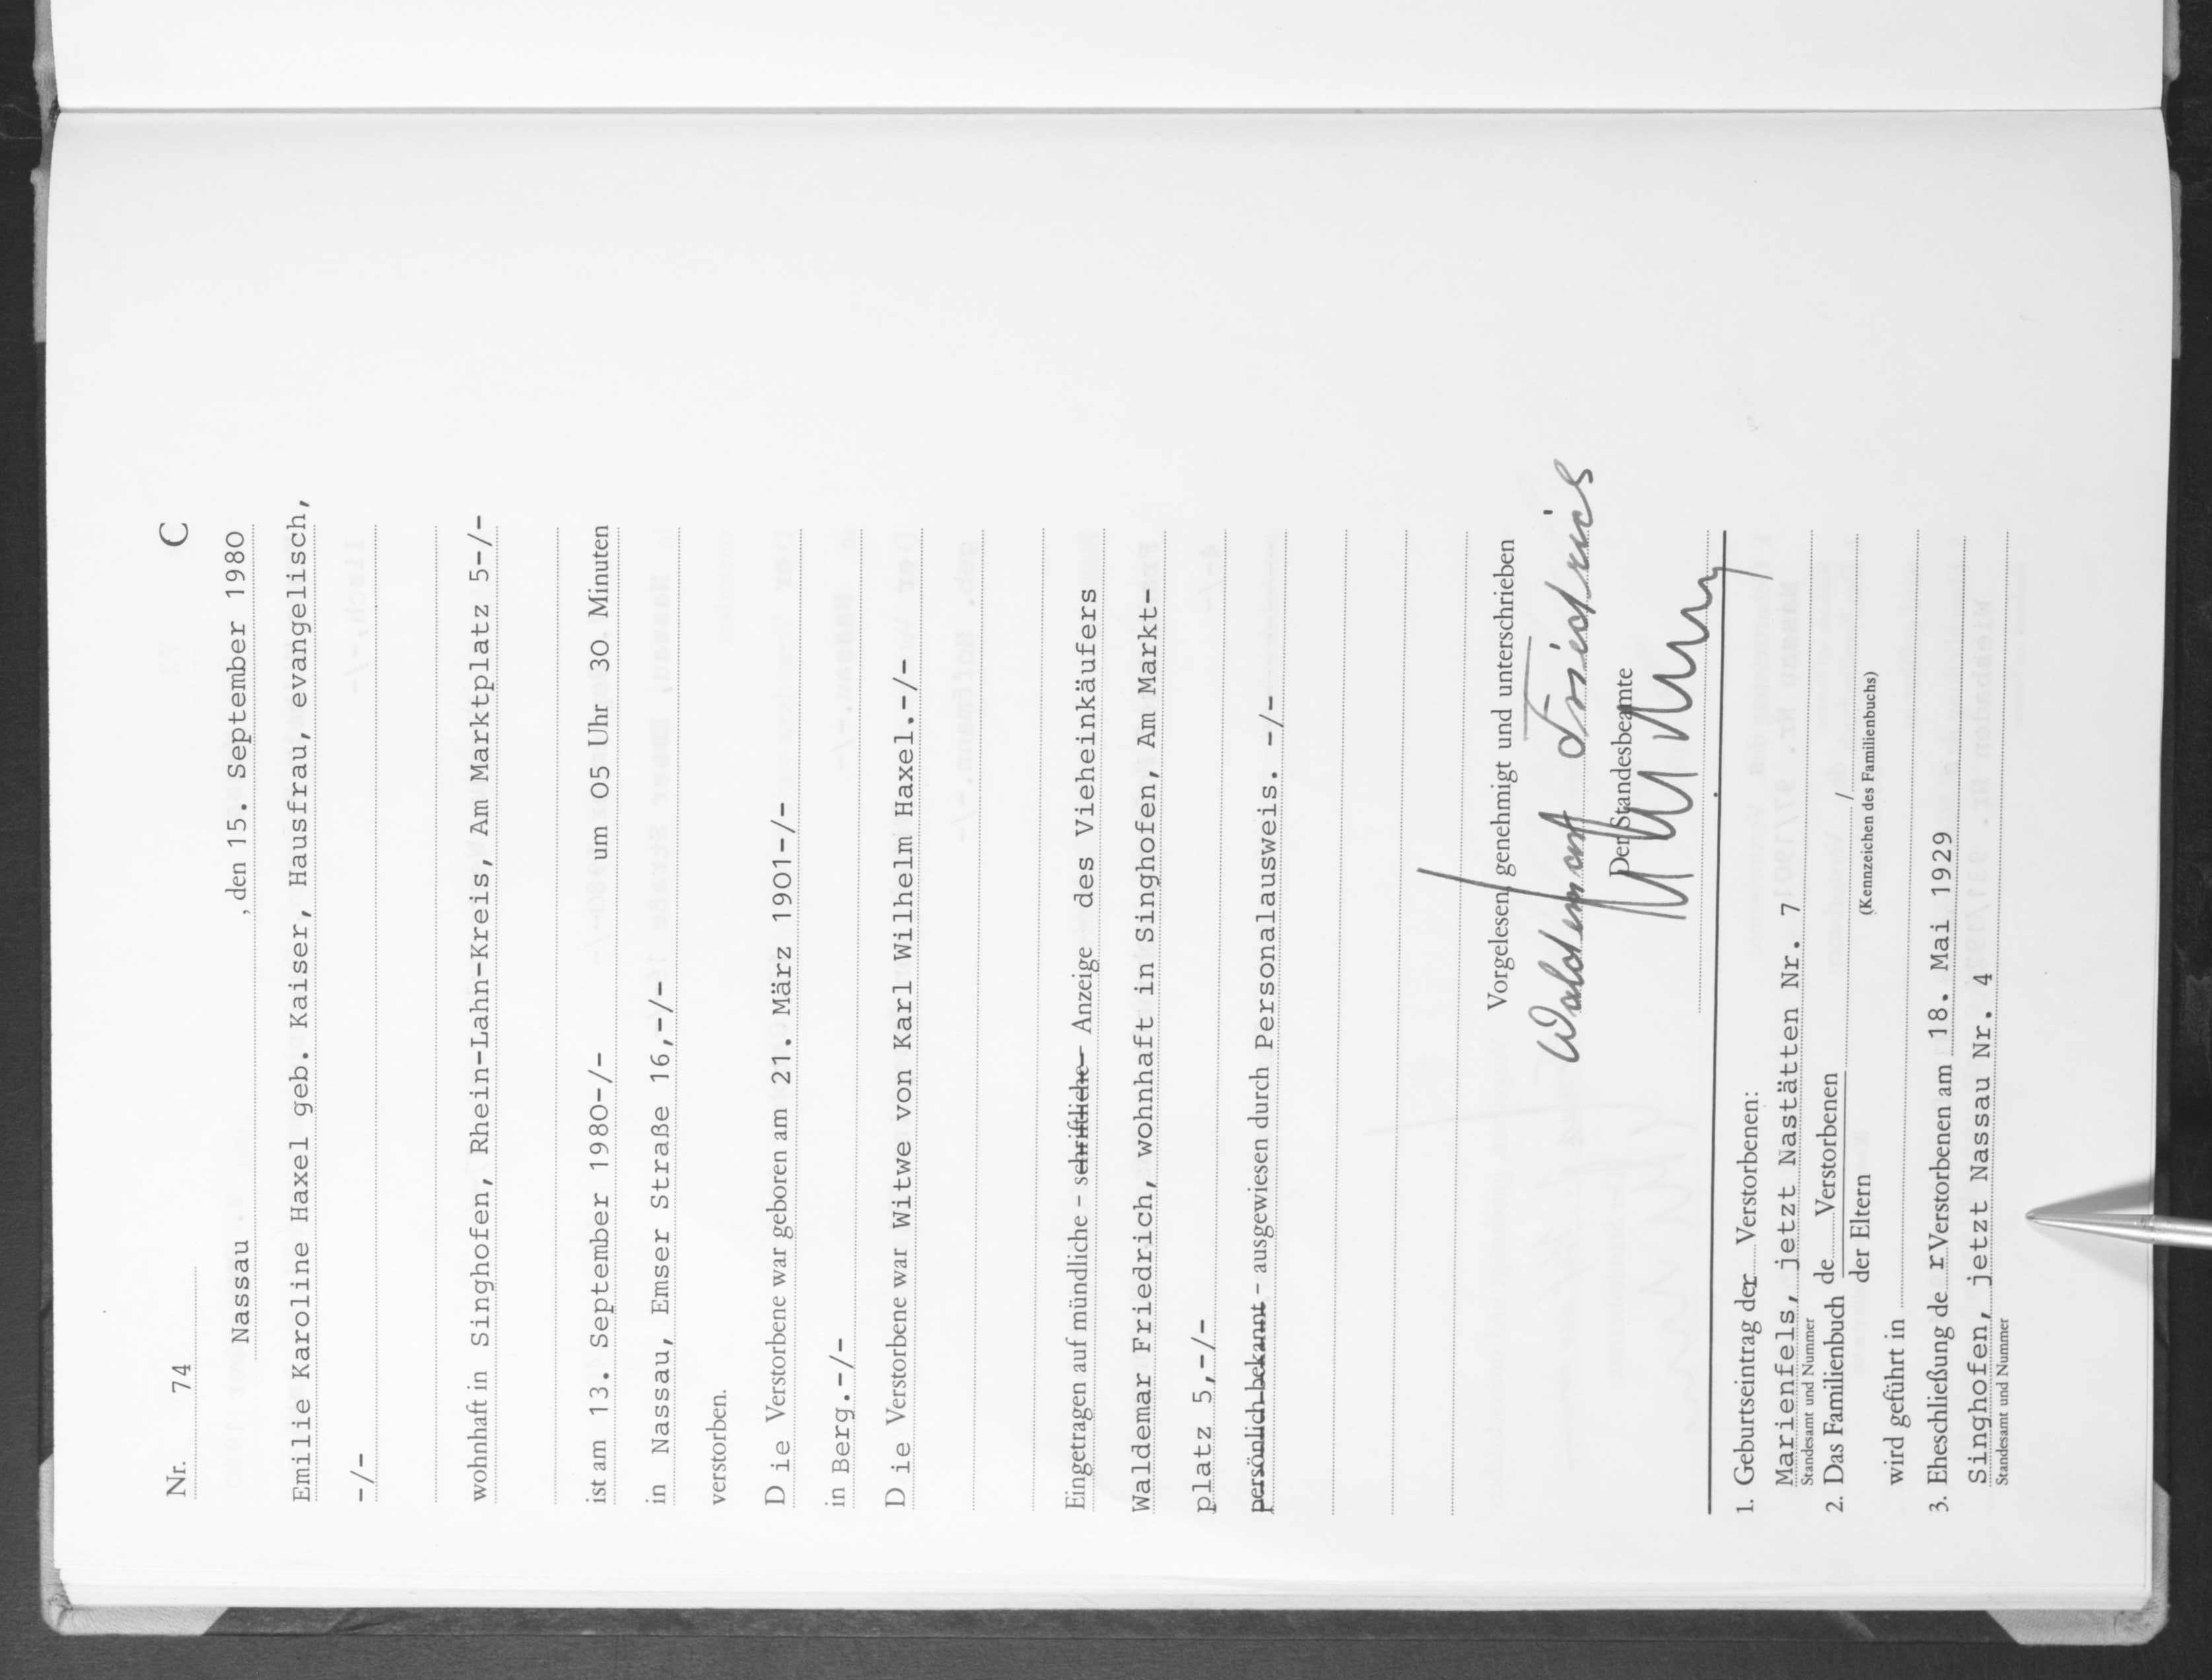 Nr. 74 C
Nassau , den 15. September 1980
Emilie Karoline Haxel geb. Kaiser, Hausfrau, evangelisch,
-/-
wohnhaft in Singhofen, Rhein-Lahn-Kreis, Am Marktplatz 5-/-
ist am 13. September 1980-/- um 05 Uhr 30 Minuten
in Nassau, Emser Straße 16,-/-
verstorben.
D ie Verstorbene war geboren am 21. März 1901-/-
in Berg.-/-
D ie Verstorbene war Witwe von Karl Wilhelm Haxel.-/-
Eingetragen auf mündliche - schriftliche - Anzeige des Vieheinkäufers
Waldemar Friedrich, wohnhaft in Singhofen, Am Markt-
platz 5,-/-
persönlich bekannt - ausgewiesen durch Personalausweis. -/-
Vorgelesen, genehmigt und unterschrieben
Waldemar Friedrich
Der Standesbeamte
1. Geburtseintrag der Verstorbenen:
Marienfels, jetzt Nastätten Nr. 7
Standesamt und Nummer
2. Das Familienbuch de Verstorbenen /
der Eltern (Kennzeichen des Familienbuchs)
wird geführt in
3. Eheschließung de r Verstorbenen am 18. Mai 1929
Singhofen, jetzt Nassau Nr. 4
Standesamt und Nummer